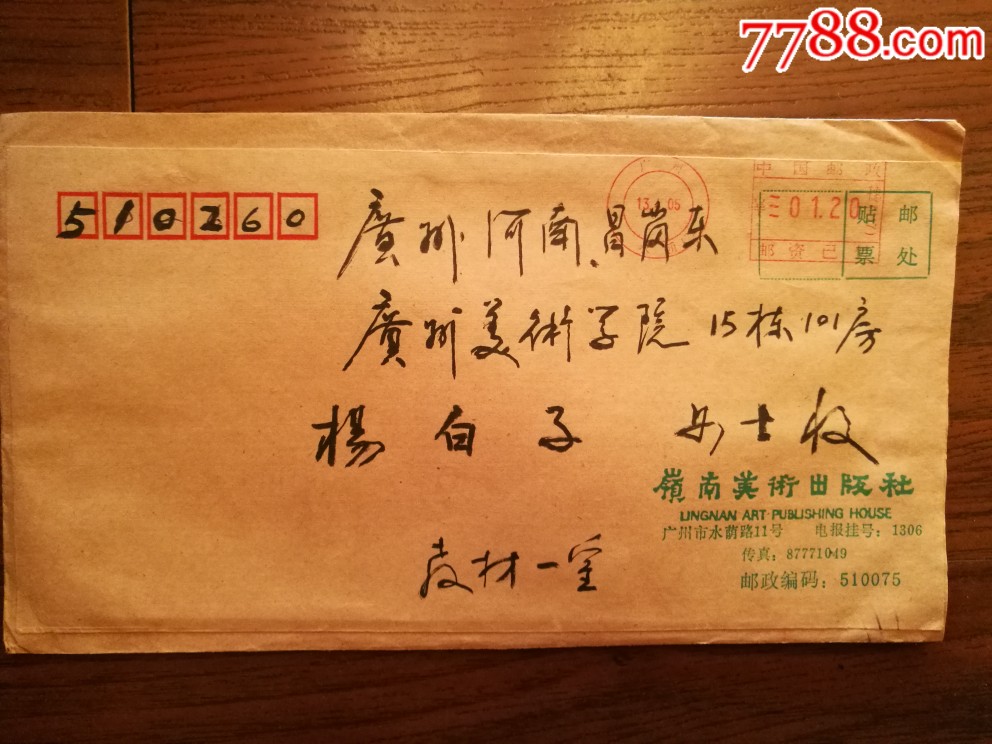 7788.com
510260
廣州河南昌崗东
廣州美術学院15栋101房
楊白子 女士收
13. 05
中国邮政
01.20
邮资已
贴邮
票处
嶺南美術出版社
LINGNAN ART PUBLISHING HOUSE
广州市水荫路11号 电报挂号：1306
传真：87771049
邮政编码：510075
教材一室